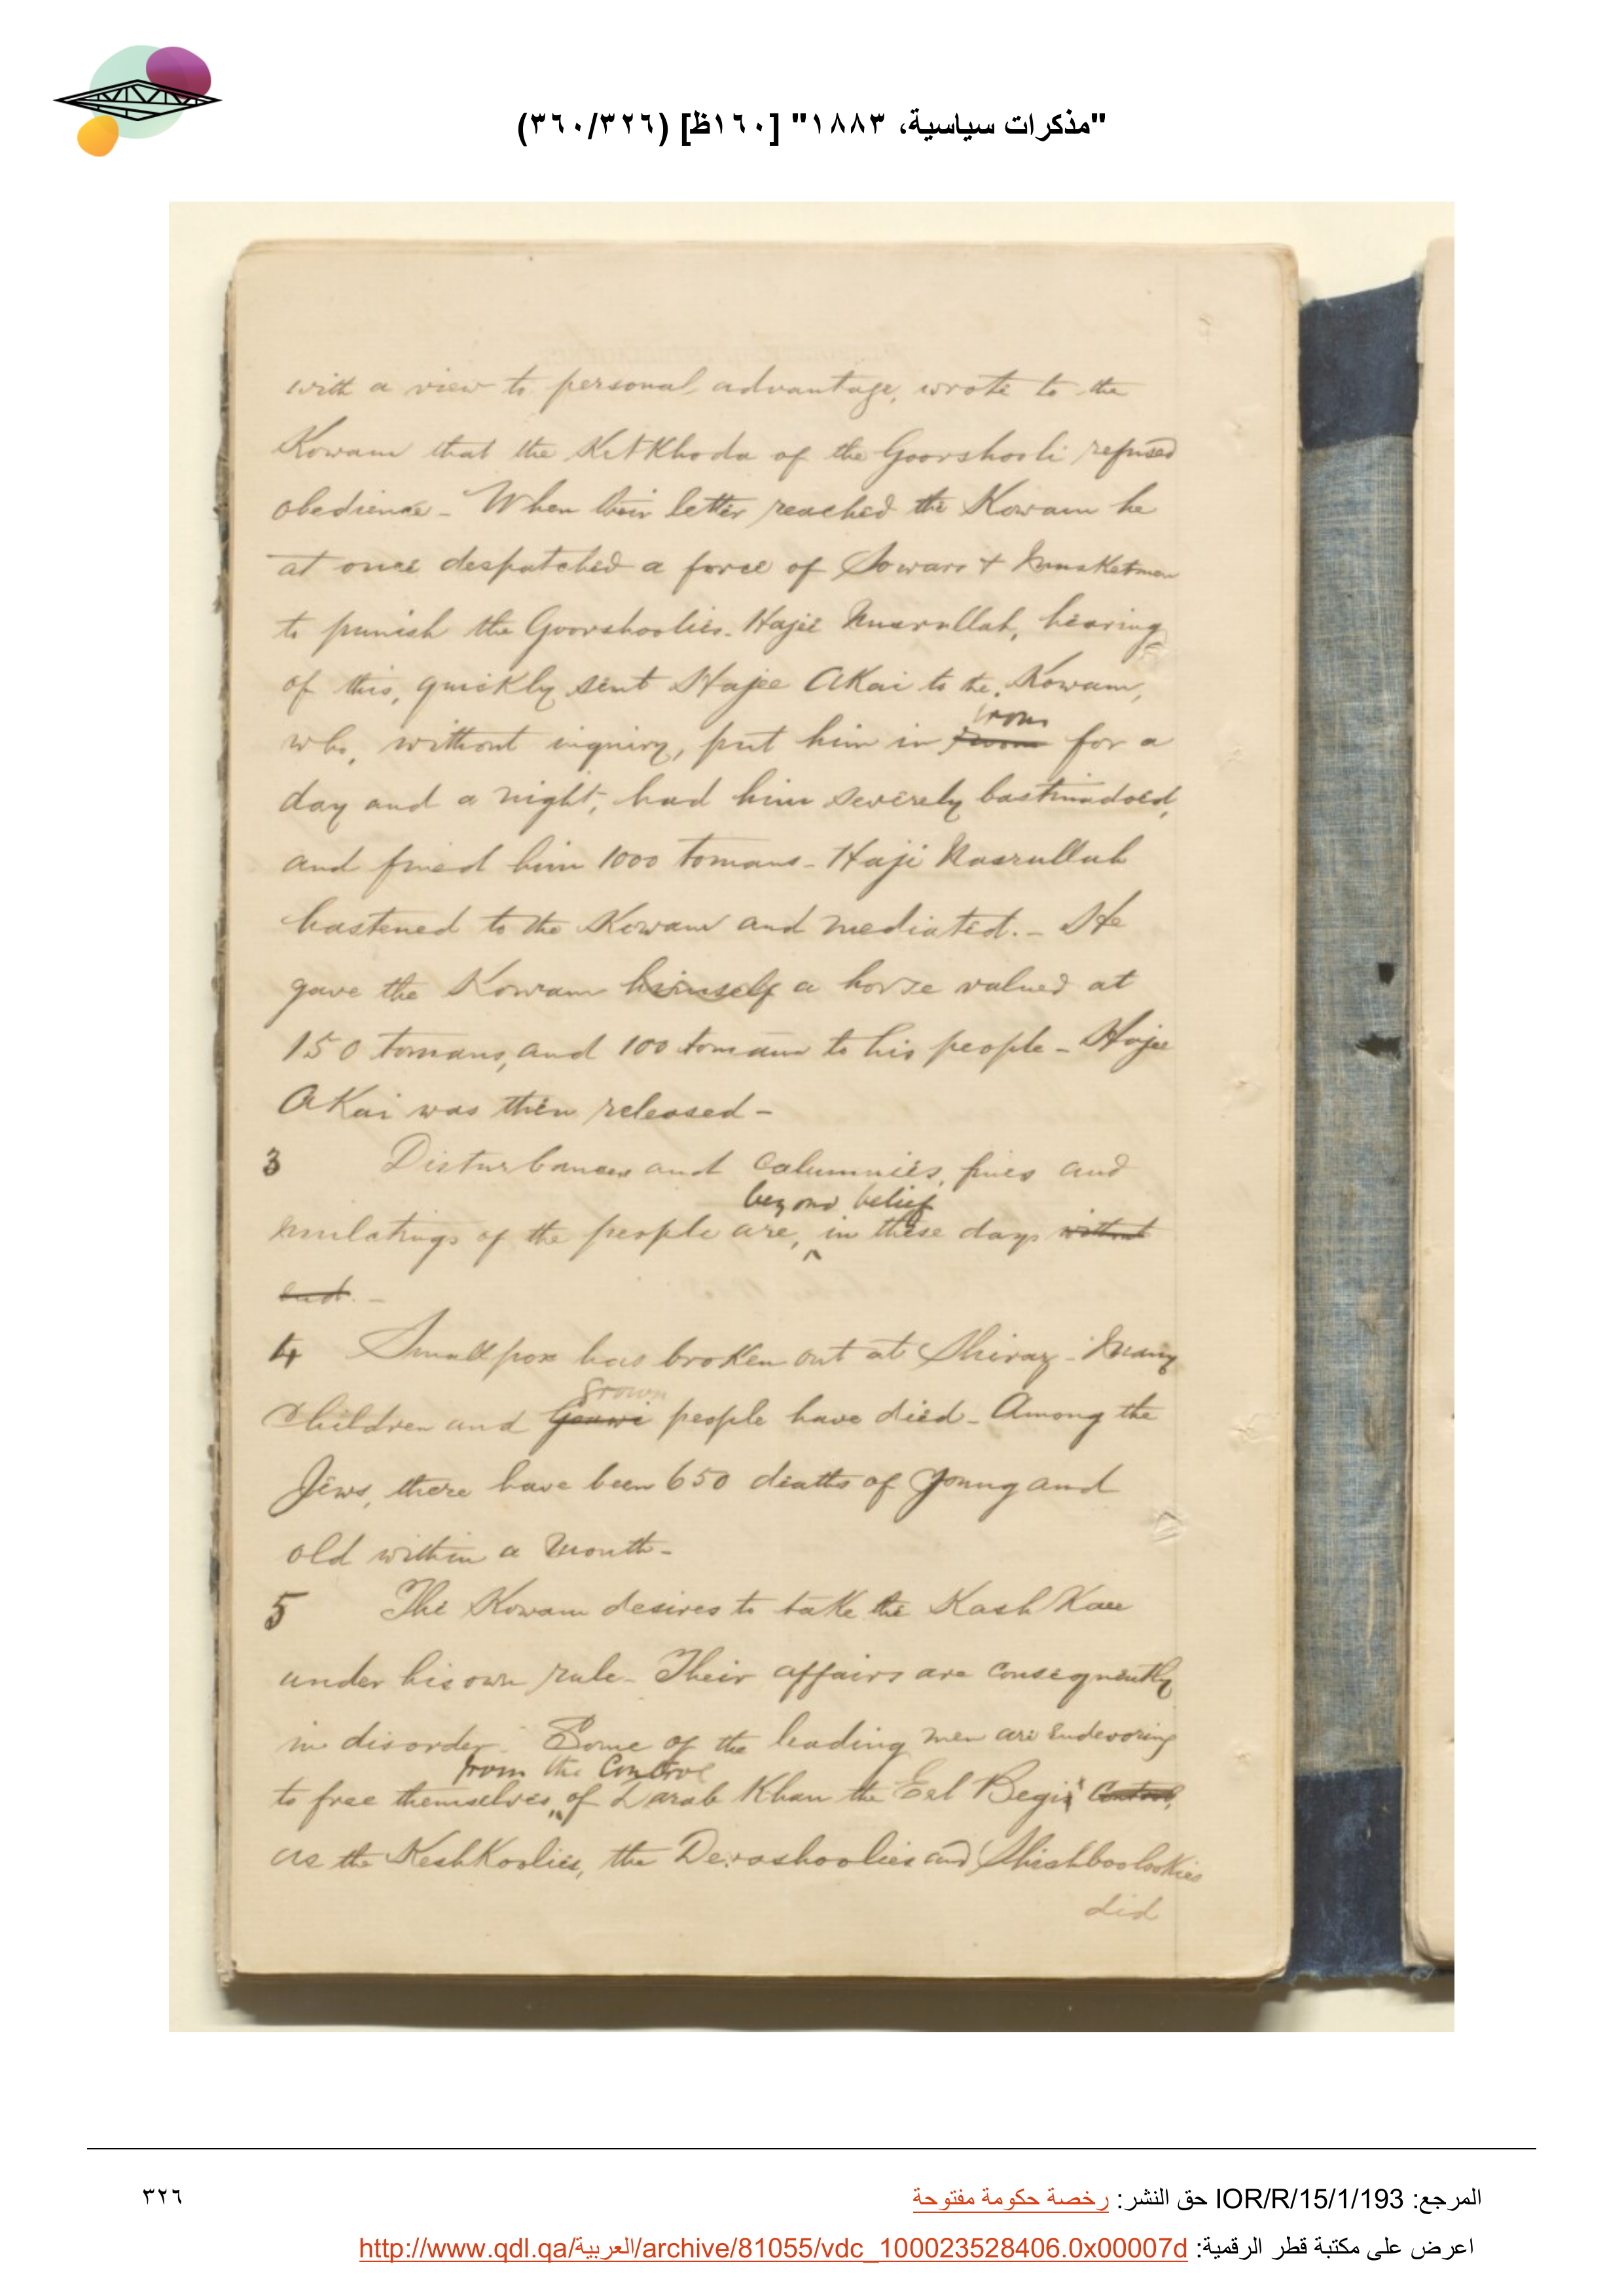 "مذكرات سياسية، ١٨٨٣" [١٦٠ظ] (٣٦٠/٣٢٦)
with a view to personal advantage, wrote to the
Kowam that the KetKhoda of the Goorshooli refused
obedience - When their letter reached the Kowam he
at once despatched a force of Sowars + Musketmen
to punish the Goorshoolies. Hajee Nusrullah, hearing
of this, quickly sent Hajee AKai to the Kowam,
irons
who, without inquiry, put him in for a
day and a night, had him severely bastinadoed,
and fined him 1000 tomans - Haji Nasrullah
hastened to the Kowam and mediated. - He
gave the Kowam himself a horse valued at
150 tomans, and 100 tomans to his people - Hajee
AKai was then released -
3 Disturbances and calumnies, fines and
beyond belief
mulctings of the people are, ^ in these days without
end. -
4 Smallpox has broken out at Shiraz - Many
grown
Children and people have died - Among the
Jews, there have been 650 deaths of young and
old within a month -
5 The Kowam desires to take the Kash Kaee
under his own rule - Their affairs are consequently
in disorder - Some of the leading men are endevoring
from the Control
to free themselves of Darab Khan the Eel Begi's Control,
as the KeshKoolies, the Derashoolies and Shishboolookies
did
المرجع: IOR/R/15/1/193 حق النشر: رخصة حكومة مفتوحة
٣٢٦
اعرض على مكتبة قطر الرقمية: http://www.qdl.qa/العربية/archive/81055/vdc_100023528406.0x00007d